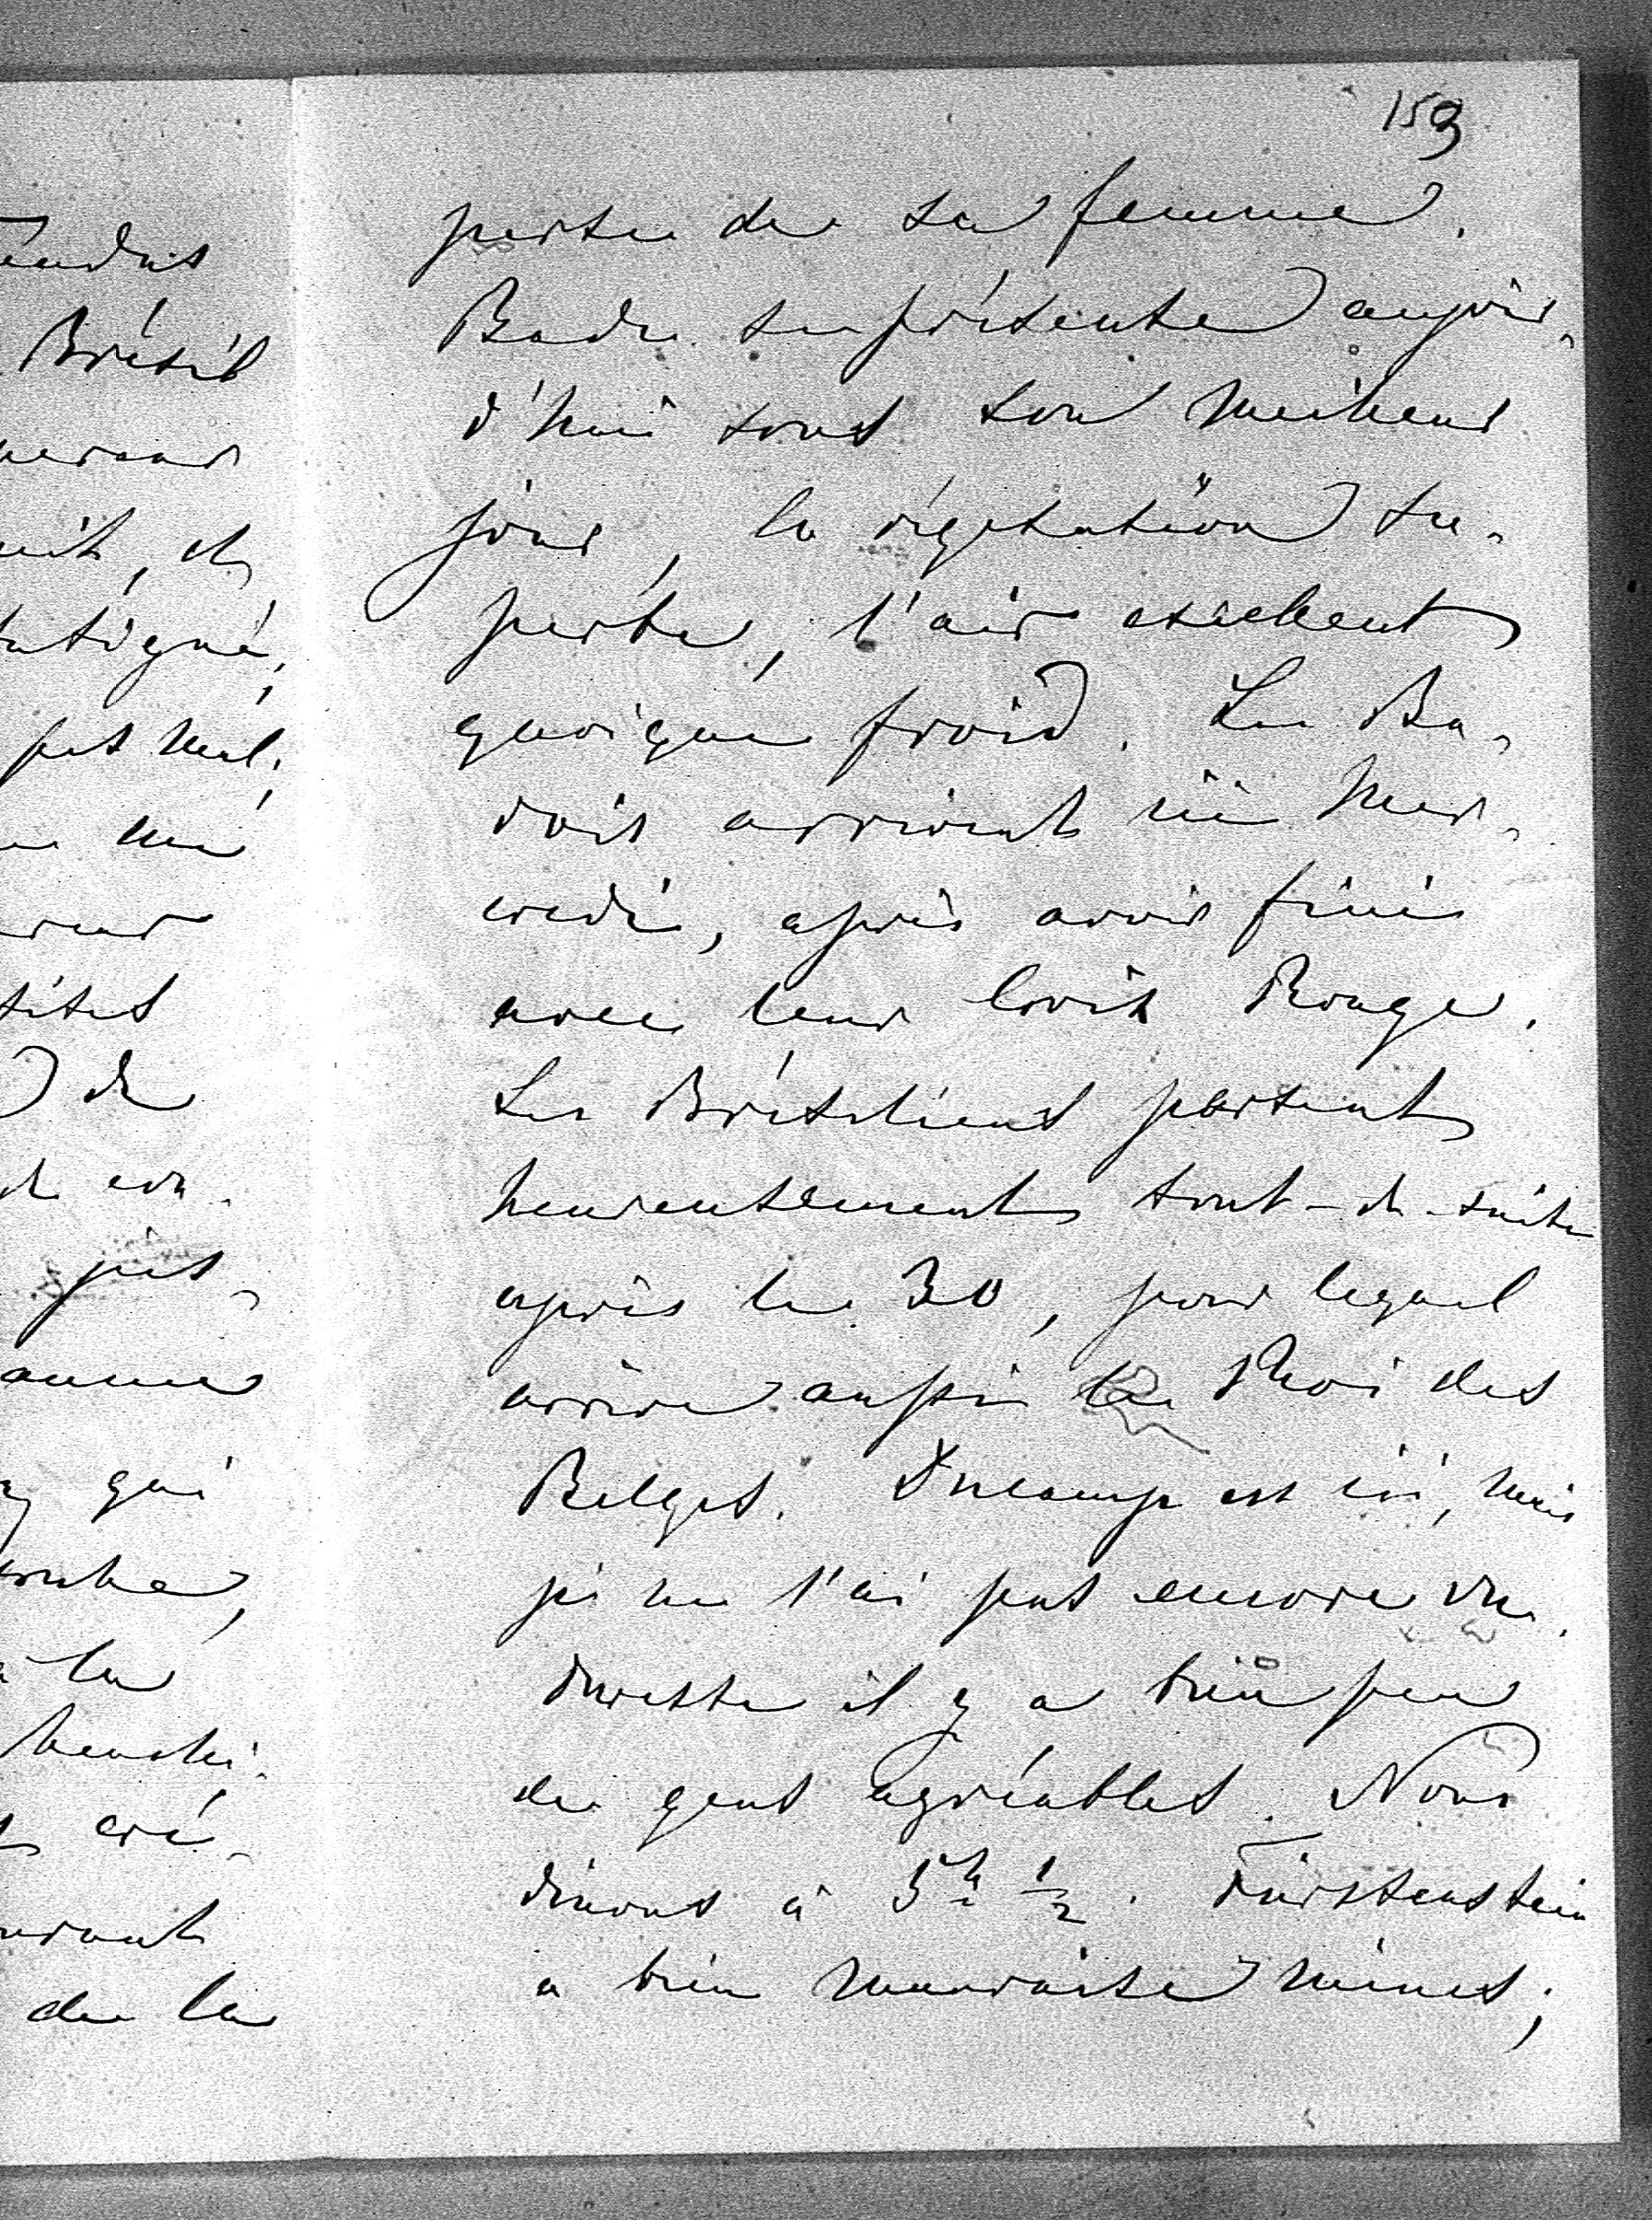 159
perte de sa femme.
Bade se présente aujour-
d'hui sous son meilleur
jour, la végétation su-
perbe, l'air excellent
quoique froid. Les Ba-
dois arrivent ici Mer-
credi, après avoir fini
avec leur Croix Rouge.
Les Brésiliens partent
heureusement tout-de-suite
après le 30, pour lequel
arrive aussi le Roi des
Belges. Ducamp est ici, mais
je ne l'ai pas encore vu.
Dureste il y a bien peu
de gens agréables. Nous
dinons à 5h 1/2. Fürstenstein
a bien mauvaise mine;
Brésil
pas mal;
de
qui
à la
de la